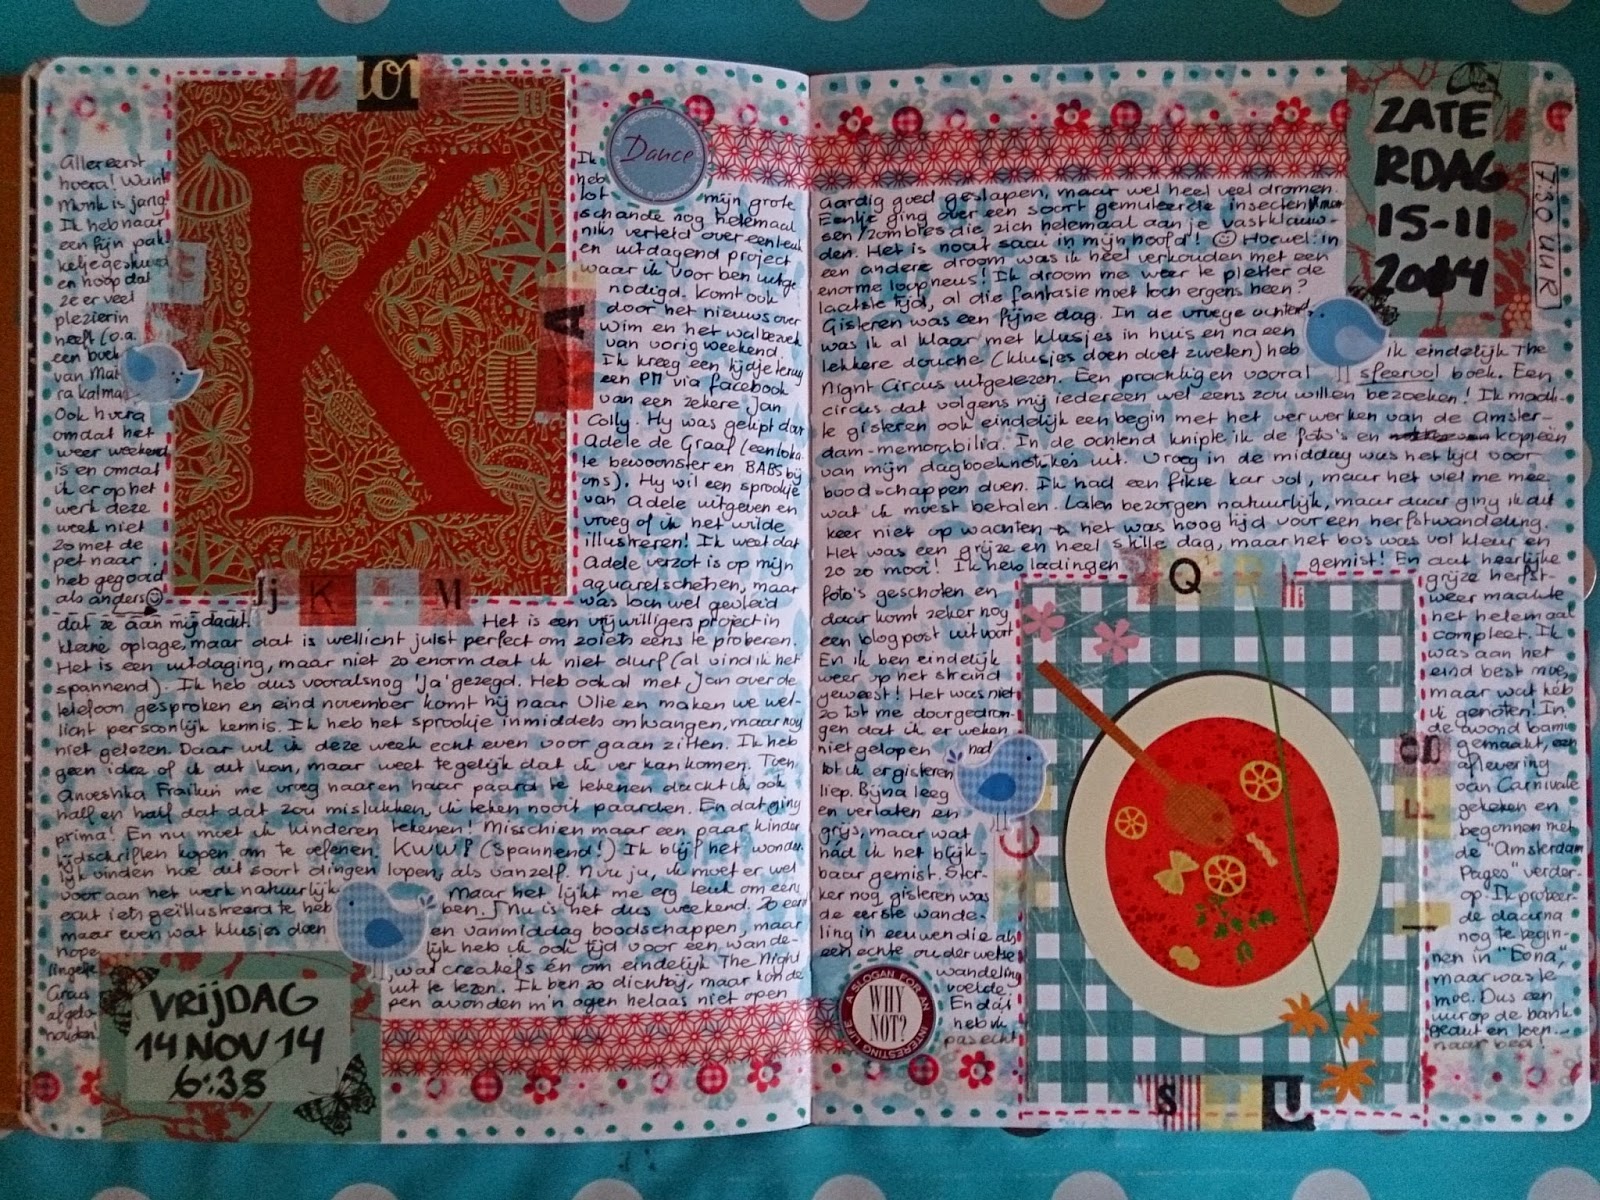 n
Allereerst
hoera! Want
Monk is jarig!
Ik heb naar
een fijn pak-
ketje gestuurd
en hoop dat
ze er veel
plezier in
heeft (o.a.
een boek
van Mai
ra Kalman
Ook hoera
omdat het
weer weekend
is en omdat
ik er op het
werk deze
week niet
zo met de
pet naar
heb gegooid
als anders
dat ze aan mij dacht.
K
A
Ij K M
Dance
Ik
heb
tot mijn grote
schande nog helemaal
niks verteld over een leuk
en uitdagend project
waar ik voor ben uitge
nodigd. Komt ook
door het nieuws over
Wim en het walbezoek
van vorig weekend.
Ik kreeg een tijdje terug
een PM via facebook
van een zekere Jan
Colly. Hij was getipt door
Adele de Graaf (een loka-
le bewoonster en BABS bij
ons). Hij wil een sprookje
van Adele uitgeven en
vroeg of ik het wilde
illustreren! Ik weet dat
Adele verzot is op mijn
aquarelschetsen, maar
was toch wel gevleid
Het is een vrijwilligers project in
kleine oplage, maar dat is wellicht juist perfect om zoiets eens te proberen.
Het is een uitdaging, maar niet zo enorm dat ik niet durf (al vind ik het
spannend). Ik heb dus vooralsnog 'ja' gezegd. Heb ook al met Jan over de
telefoon gesproken en eind november komt hij naar Olie en maken we wel-
licht persoonlijk kennis. Ik heb het sprookje inmiddels ontvangen, maar nog
niet gelezen. Daar wil ik deze week echt even voor gaan zitten. Ik heb
geen idee of ik dit kan, maar weet tegelijk dat ik ver kan komen. Toen
Anoeshka Fraikin me vroeg naar en haar paard te tekenen dacht ik ook
half en half dat dat zou mislukken, ik teken nooit paarden. En dat ging
prima! En nu moet ik kinderen tekenen! Misschien maar een paar kinder
tijdschriften kopen om te oefenen. KWW! (Spannend!) Ik blijf het wonder
lijk vinden hoe dit soort dingen lopen, als vanzelf. Nou ju, ik moet er wel
voor aan het werk natuurlijk Maar het lijkt me erg leuk om eens
echt iets geïllustreerd te heb ben. Nu is het dus weekend. Zo een
maar even wat klusjes doen en vanmiddag boodschappen, maar
lijk heb ik ook tijd voor een wande-
wat creakefs én om eindelijk The Night
uit te lezen. Ik ben zo dichtbij, maar kon de
pen avonden m'n ogen helaas niet open
VRIJDAG
14 NOV 14
6:38
ZATE
RDAG
15-11
2014
7:30 UUR
aardig goed geslapen, maar wel heel veel dromen.
Eentje ging over een soort gemuteerde insecten
sen/zombies die zich helemaal aan je vastklauw-
den. Het is nooit saai in mijn hoofd! Hoewel: in
een andere droom was ik heel verkouden met een
enorme loopneus! Ik droom me weer te pletter de
laatste tijd, al die fantasie moet toch ergens heen?
Gisteren was een fijne dag. In de vroege ochtend
was ik al klaar met klusjes in huis en na een
lekkere douche (klusjes doen doet zweten) heb ik eindelijk The
Night Circus uitgelezen. Een prachtig en vooral sfeervol boek. Een
circus dat volgens mij iedereen wel eens zou willen bezoeken! Ik maak-
te gisteren ook eindelijk een begin met het verwerken van de Amster-
dam-memorabilia. In de ochtend knipte ik de foto's en kopieën
van mijn dagboeknotities uit. Vroeg in de middag was het tijd voor
boodschappen doen. Ik had een fikse kar vol, maar het viel me mee
wat ik moest betalen. Laten bezorgen natuurlijk, maar daar ging ik dit
keer niet op wachten → het was hoog tijd voor een herfstwandeling.
Het was een grijze en heel stille dag, maar het bos was vol kleur en
zo zo mooi! Ik heb ladingen gemist! En dat heerlijke
foto's geschoten en
daar komt zeker nog
een blogpost uit voort
En ik ben eindelijk
weer op het strand
geweest! Het was niet
zo tot me doorgedron-
gen dat ik er weken
niet gelopen had
tot ik er gisteren
liep. Bijna leeg
en verlaten en
grijs, maar wat
hád ik het blijk-
baar gemist. Ster-
ker nog gisteren was
de eerste wande-
ling in eeuwen die als
een echte ouderwetse
wandeling
voelde
En dat
heb ik
pas echt
WHY
NOT?
A SLOGAN FOR AN INTERESTING LIFE
Q
en
S U
grijze herfst-
weer maakte
het helemaal
compleet. Ik
was aan het
eind best moe,
maar wat heb
ik genoten! In
de avond bami
gemaakt, een
aflevering
van Carnivale
gekeken en
begonnen met
de "Amsterdam
Pages" verder-
op. Ik probeer-
de daarna
nog te begin-
nen in "Bona",
maar was te
moe. Dus een
uur op de bank
gedut en toen...
naar bed!